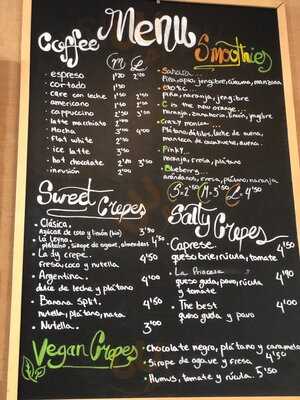 Menu
Coffee
M L
espreso 1'20 2'00
cortado 1'30
café con leche
americano 1'40
cappuccino 2'50
latte macchiato 2'00
Mocha 3'00 4'00
flat white 2'50
ice latte 3'50
hot chocolate 2'50 3'50
infusión 2'00
Smoothies
piña, apio, jengibre, cúrcuma, manzana
exotic...
piña, naranja, jengibre
C is the new orange...
naranja, zanahoria, limón, jengibre
Crazy monica...
Plátano, dátiles, leche de avena,
manteca de cacahuete, avena.
Pinky...
naranja, fresa, plátano
Blueberry...
arándanos, fresa, plátano, naranja
S-2'50 M-3'50 L-4'50
Sweet Crepes
Clásica. 3'50
azúcar de coco y limón (bio)
plátano, sirope de agave, almendras 4'50
La dy crepe.
fresa, coco y nutella
Argentina. 4'00
dulce de leche y plátano
Banana Split. 4'50
nutella, plátano, nata
Nutella. 3'00
Salty Crepes
Caprese. 4'50
queso brie, rúcula, tomate
La Princesa 4'90
queso guda, pavo, rúcula
y tomate
The best 4'00
queso guda y pavo
Vegan Crepes
Chocolate negro, plátano y caramelo
Sirope de agave y fresa 4'50
Humus, tomate y rúcula. 5'50